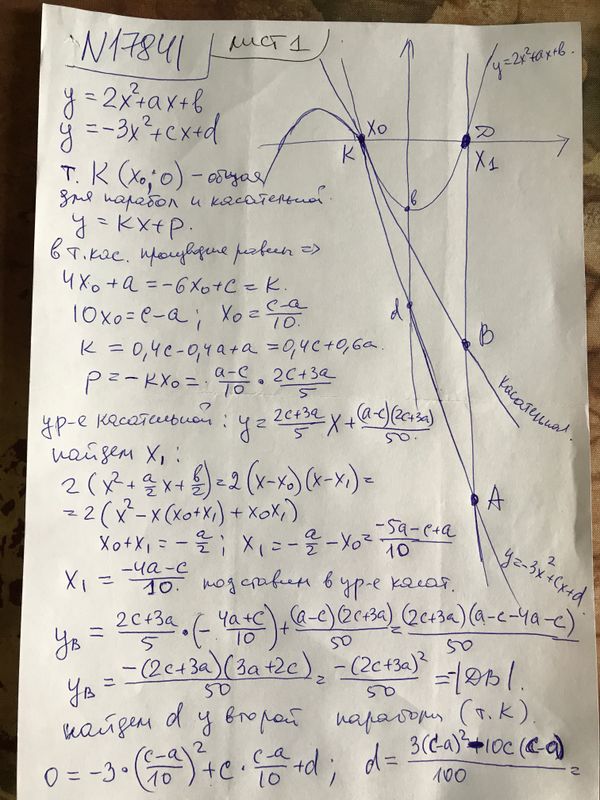 N17841 лист 1
y = 2x²+ax+b
y = -3x²+cx+d
т. K (x₀; 0) - общая
для парабол и касательной.
y = kx+p.
в т. кас. производные равны =>
4x₀+a = -6x₀+c = k.
10x₀ = c-a; x₀ = (c-a)/10.
k = 0,4c-0,4a+a = 0,4c+0,6a.
p = -kx₀ = (a-c)/10 · (2c+3a)/5
ур-е касательной: y = (2c+3a)/5 x + (a-c)(2c+3a)/50.
найдем x₁:
2(x²+a/2 x+b/2) = 2(x-x₀)(x-x₁) =
= 2(x²-x(x₀+x₁)+x₀x₁)
x₀+x₁ = -a/2; x₁ = -a/2 - x₀ = (-5a-c+a)/10
x₁ = (-4a-c)/10. подставим в ур-е касат.
y_B = (2c+3a)/5 · (-(4a+c)/10) + (a-c)(2c+3a)/50 = (2c+3a)(a-c-4a-c)/50
y_B = -(2c+3a)(3a+2c)/50 = -(2c+3a)²/50 = -|DB|.
найдем d у второй параболы (т. K).
0 = -3·((c-a)/10)² + c·(c-a)/10 + d; d = (3(c-a)²-10c(c-a))/100 =
y=2x²+ax+b.
x₀
K
D
x₁
b
d
B
касательная.
A
y=-3x²+cx+d.